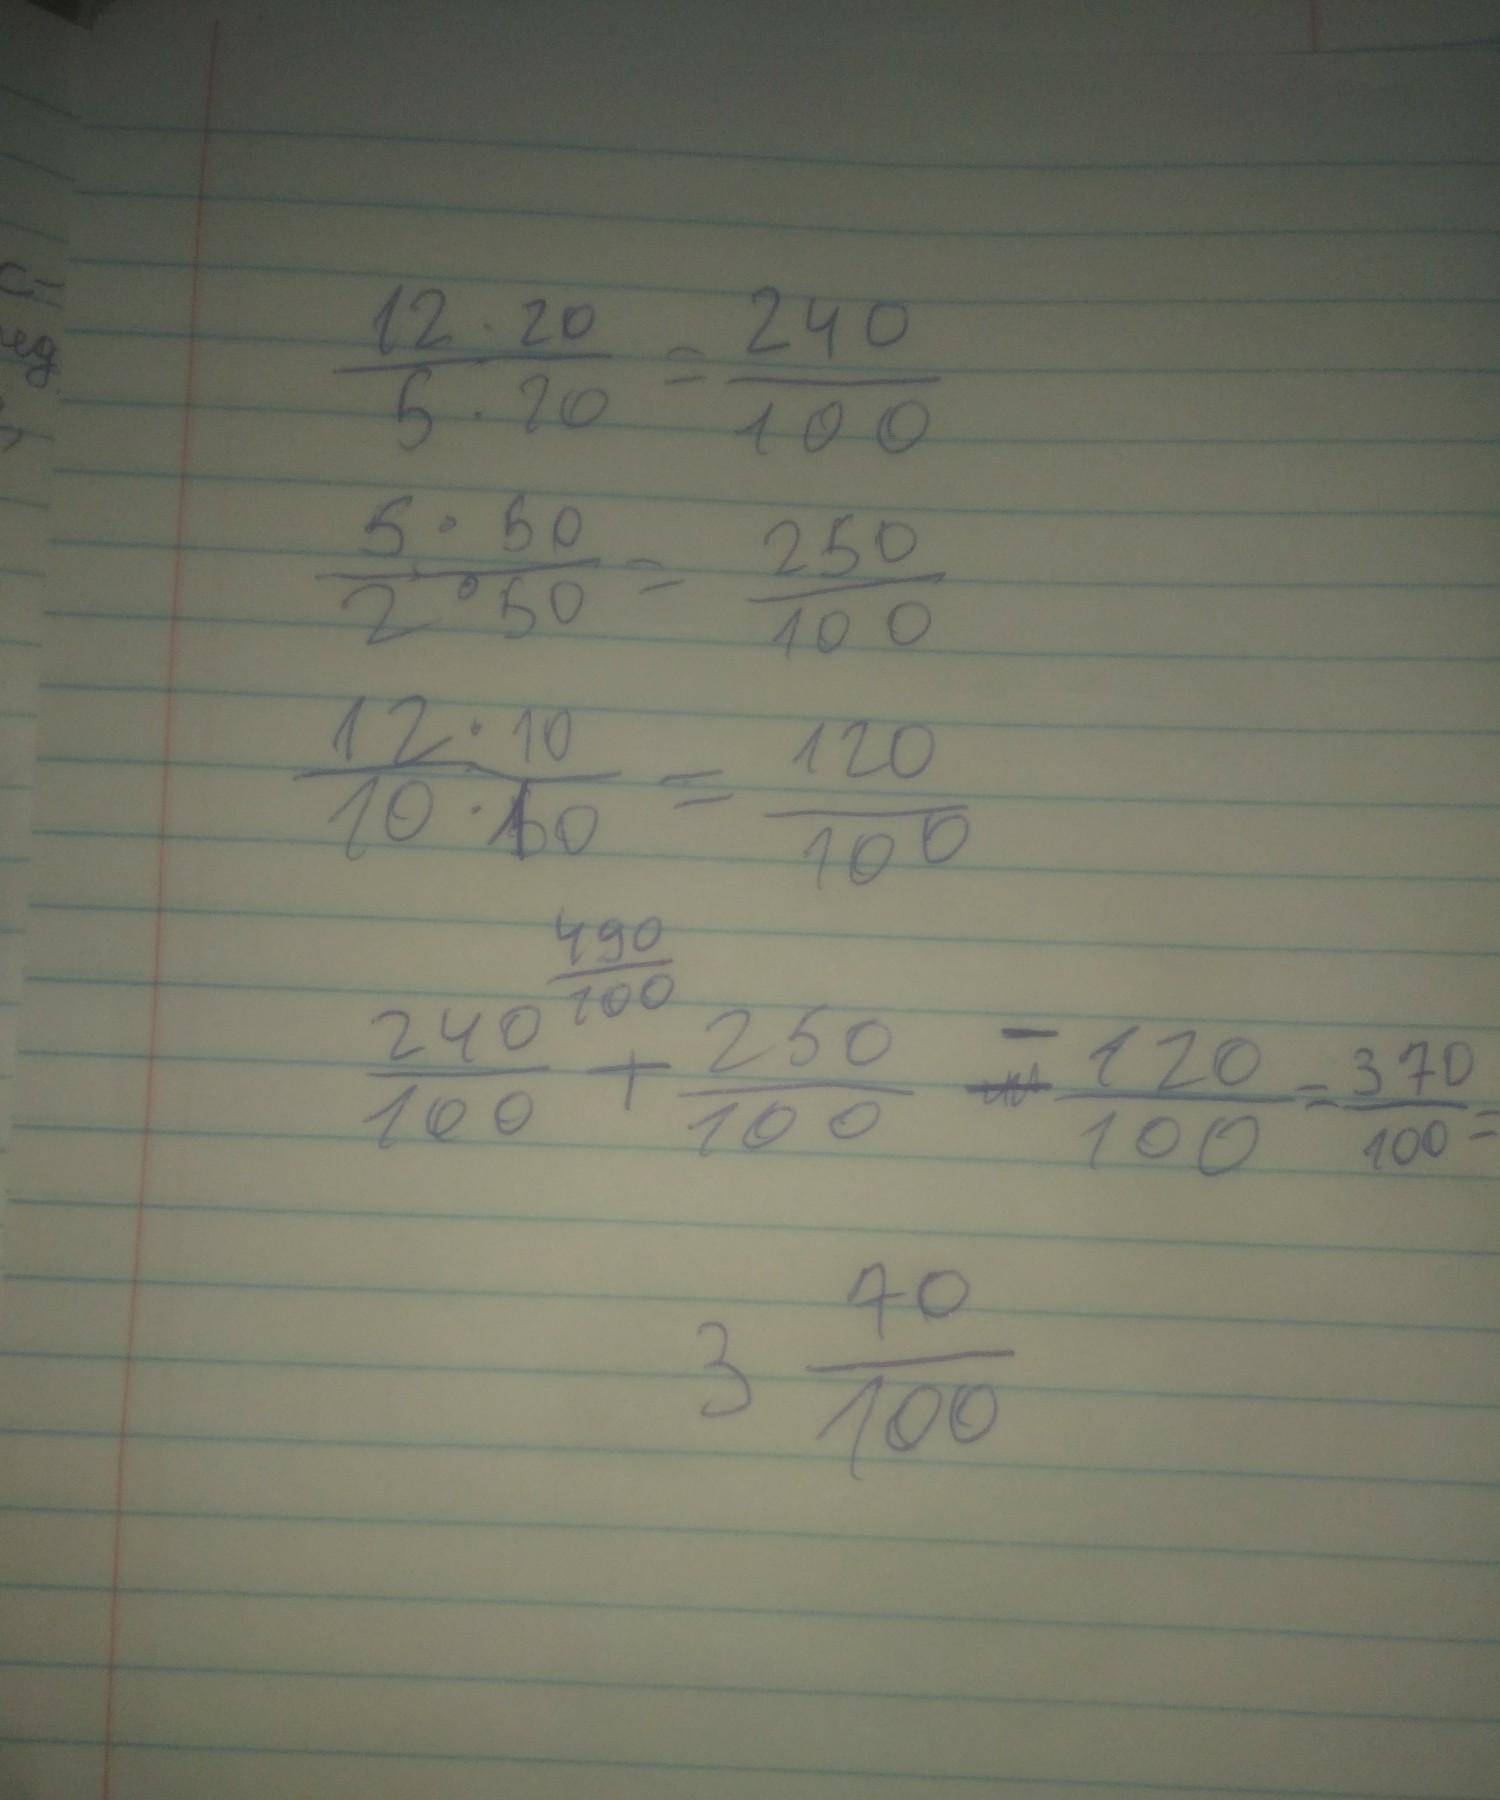 12 · 20 / 5 · 20 = 240 / 100
5 · 50 / 2 · 50 = 250 / 100
12 · 10 / 10 · 10 = 120 / 100
490 / 100
240 / 100 + 250 / 100 - 120 / 100 = 370 / 100 =
3 70 / 100
с-